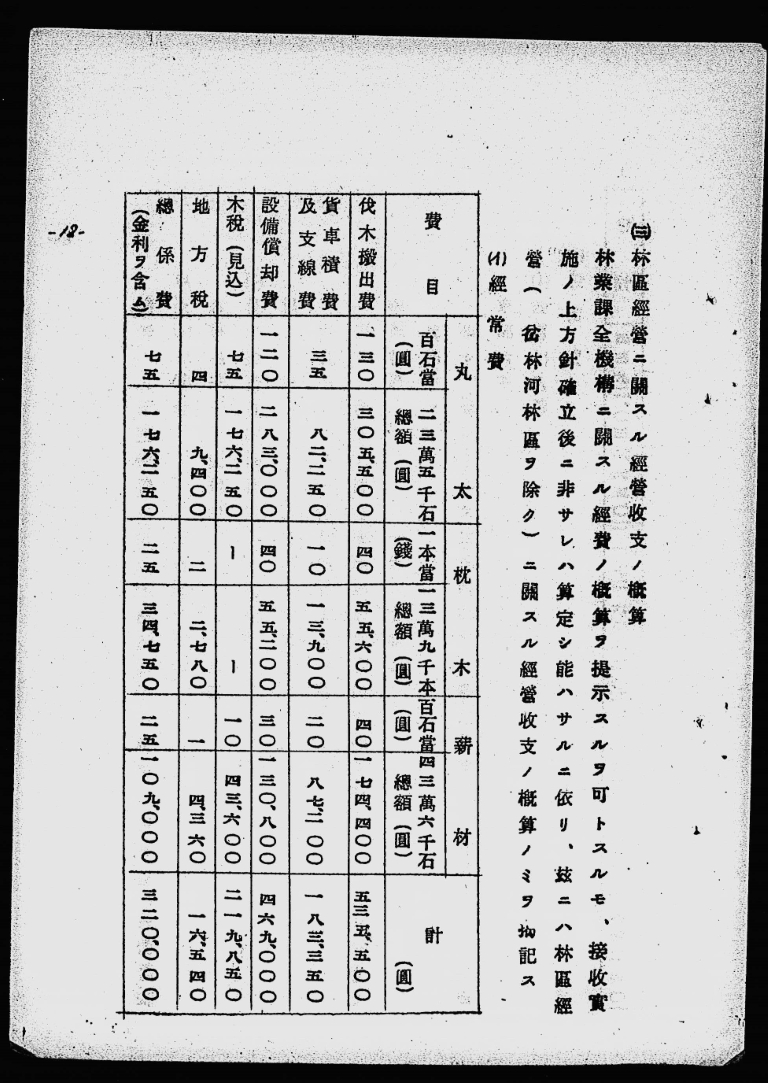 ㈢林區經營ニ關スル經營收支ノ概算
林業課全機構ニ關スル經費ノ概算ヲ提示スルヲ可トスルモ、接收實
施ノ上方針確立後ニ非サレハ算定シ能ハサルニ依リ、玆ニハ林區經
營(岔林河林區ヲ除ク)ニ關スル經營收支ノ概算ノミヲ掲記ス
(イ)經常費
丸太 枕木 薪材
費目 百石當(圓) 二三萬五千石總額(圓) 一本當(錢) 一三萬九千本總額(圓) 百石當(圓) 四三萬六千石總額(圓) 計(圓)
伐木搬出費 一三〇 三〇五、五〇〇 四〇 五五、六〇〇 四〇 一七四、四〇〇 五三五、五〇〇
貨車積費及支線費 三五 八二、二五〇 一〇 一三、九〇〇 二〇 八七、二〇〇 一八三、三五〇
設備償却費 一二〇 二八三、〇〇〇 四〇 五五、二〇〇 三〇 一三〇、八〇〇 四六九、〇〇〇
木稅(見込) 七五 一七六、二五〇 ー ー 一〇 四三、六〇〇 二一九、八五〇
地方稅 四 九、四〇〇 二 二、七八〇 一 四、三六〇 一六、五四〇
總係費(金利ヲ含ム) 七五 一七六、二五〇 二五 三四、七五〇 二五 一〇九、〇〇〇 三二〇、〇〇〇
-18-